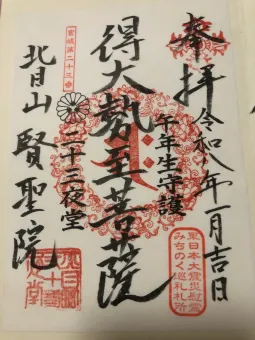 奉拝
令和八年一月吉日
午年生守護
得大勢至菩薩
二十三夜堂
北目山 賢聖院
宮城第二十三番
東日本大震災慰霊
みちのく巡礼札所